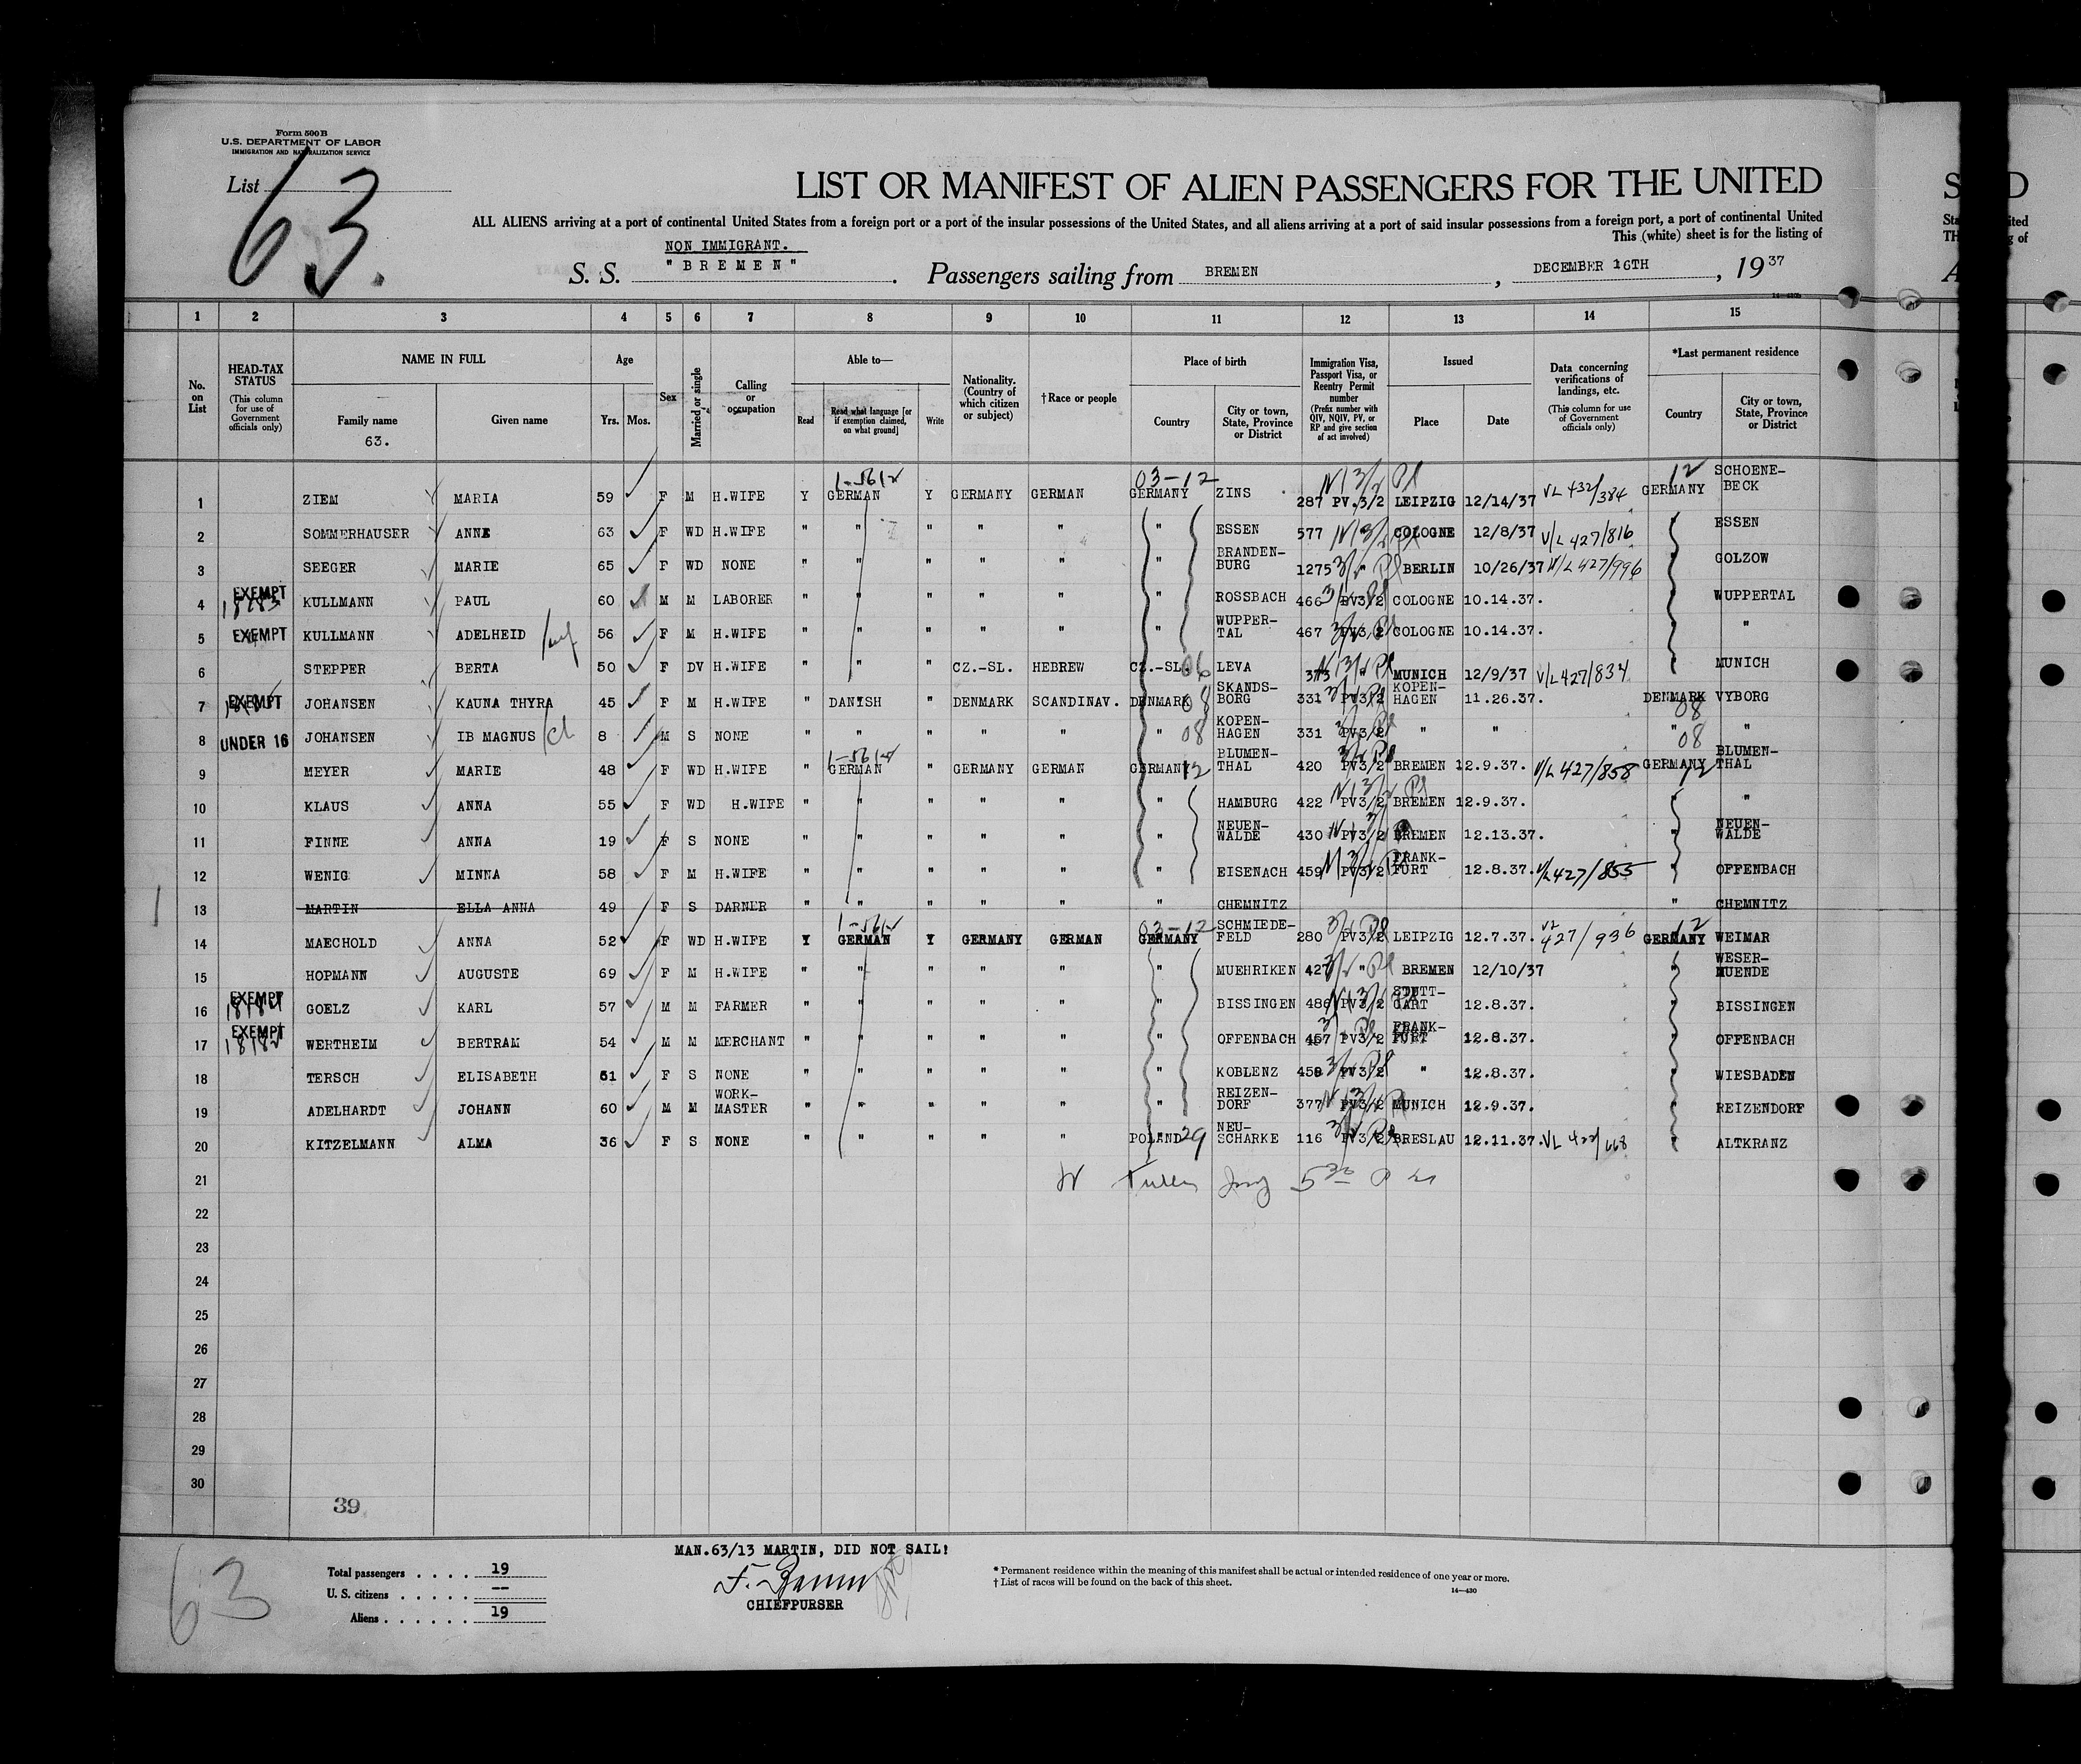 Form 500B
U.S. DEPARTMENT OF LABOR
IMMIGRATION AND NATURALIZATION SERVICE
List 63.
LIST OR MANIFEST OF ALIEN PASSENGERS FOR THE UNITED
ALL ALIENS arriving at a port of continental United States from a foreign port or a port of the insular possessions of the United States, and all aliens arriving at a port of said insular possessions from a foreign port, a port of continental United
This (white) sheet is for the listing of
NON IMMIGRANT.
S. S. "BREMEN". Passengers sailing from BREMEN, DECEMBER 16TH, 1937
1 2 3 4 5 6 7 8 9 10 11 12 13 14 15
No. on List
HEAD-TAX STATUS (This column for use of Government officials only)
NAME IN FULL Family name Given name
63.
Age Yrs. Mos.
Sex
Married or single
Calling or occupation
Able to— Read Read what language [or if exemption claimed, on what ground] Write
Nationality. (Country of which citizen or subject)
†Race or people
Place of birth Country City or town, State, Province or District
Immigration Visa, Passport Visa, or Reentry Permit number (Prefix number with QIV, NQIV, PV, or RP and give section of act involved)
Issued Place Date
Data concerning verifications of landings, etc. (This column for use of Government officials only)
*Last permanent residence Country City or town, State, Province or District
1 ZIEM MARIA 59 F M H.WIFE Y GERMAN Y GERMANY GERMAN 03-12 GERMANY ZINS 287 PV.3/2 LEIPZIG 12/14/37 VL 432/384 12 GERMANY SCHOENE-BECK
2 SOMMERHAUSER ANNE 63 F WD H.WIFE " " " " " " ESSEN 577 COLOGNE 12/8/37 V/L 427/816 " ESSEN
3 SEEGER MARIE 65 F WD NONE " " " " " " BRANDEN-BURG 1275 " BERLIN 10/26/37 V/L 427/996 " GOLZOW
4 EXEMPT KULLMANN PAUL 60 M M LABORER " " " " " " ROSSBACH 466 PV3/2 COLOGNE 10.14.37. " WUPPERTAL
5 EXEMPT KULLMANN ADELHEID 56 F M H.WIFE " " " " " " WUPPER-TAL 467 PV3/2 COLOGNE 10.14.37. "
6 STEPPER BERTA 50 F DV H.WIFE " " " CZ.-SL. HEBREW CZ.-SL. 06 LEVA " MUNICH 12/9/37 V/L 427/834 MUNICH
7 EXEMPT JOHANSEN KAUNA THYRA 45 F M H.WIFE " DANISH " DENMARK SCANDINAV. DENMARK 08 SKANDS-BORG 331 PV3/2 KOPEN-HAGEN 11.26.37. DENMARK 08 VYBORG
8 UNDER 16 JOHANSEN IB MAGNUS 8 M S NONE " " " " " " 08 KOPEN-HAGEN 331 PV3/2 " " " 08 "
9 MEYER MARIE 48 F WD H.WIFE " GERMAN " GERMANY GERMAN GERMANY 12 BLUMEN-THAL 420 PV3/2 BREMEN 12.9.37. V/L 427/858 GERMANY 12 BLUMEN-THAL
10 KLAUS ANNA 55 F WD H.WIFE " " " " " " HAMBURG 422 PV3/2 BREMEN 12.9.37. " "
11 FINNE ANNA 19 F S NONE " " " " " " NEUEN-WALDE 430 PV3/2 BREMEN 12.13.37. " NEUEN-WALDE
12 WENIG MINNA 58 F M H.WIFE " " " " " " EISENACH 459 PV3/2 FRANK-FURT 12.8.37. V/L 427/855 " OFFENBACH
13 MARTIN ELLA ANNA 49 F S DARNER " " " " " " CHEMNITZ " CHEMNITZ
14 MAECHOLD ANNA 52 F WD H.WIFE Y GERMAN Y GERMANY GERMAN 03-12 GERMANY SCHMIEDE-FELD 280 PV3/2 LEIPZIG 12.7.37. 427/936 12 GERMANY WEIMAR
15 HOPMANN AUGUSTE 69 F M H.WIFE " " " " " " MUEHRIKEN 427 " BREMEN 12/10/37 " WESER-MUENDE
16 EXEMPT GOELZ KARL 57 M M FARMER " " " " " " BISSINGEN 486 PV3/2 STUTT-GART 12.8.37. " BISSINGEN
17 EXEMPT WERTHEIM BERTRAM 54 M M MERCHANT " " " " " " OFFENBACH 457 PV3/2 FRANK-FURT 12.8.37. " OFFENBACH
18 TERSCH ELISABETH 61 F S NONE " " " " " " KOBLENZ 458 PV3/2 " 12.8.37. " WIESBADEN
19 ADELHARDT JOHANN 60 M M WORK-MASTER " " " " " " REIZEN-DORF 377 PV3/2 MUNICH 12.9.37. " REIZENDORF
20 KITZELMANN ALMA 36 F S NONE " " " " " POLAND 29 NEU-SCHARKE 116 PV3/2 BRESLAU 12.11.37. " ALTKRANZ
21
22
23
24
25
26
27
28
29
30
39
MAN.63/13 MARTIN, DID NOT SAIL!
CHIEFPURSER
63
Total passengers . . . . 19
U. S. citizens . . . . . --
Aliens . . . . . . 19
* Permanent residence within the meaning of this manifest shall be actual or intended residence of one year or more.
† List of races will be found on the back of this sheet.
14—430